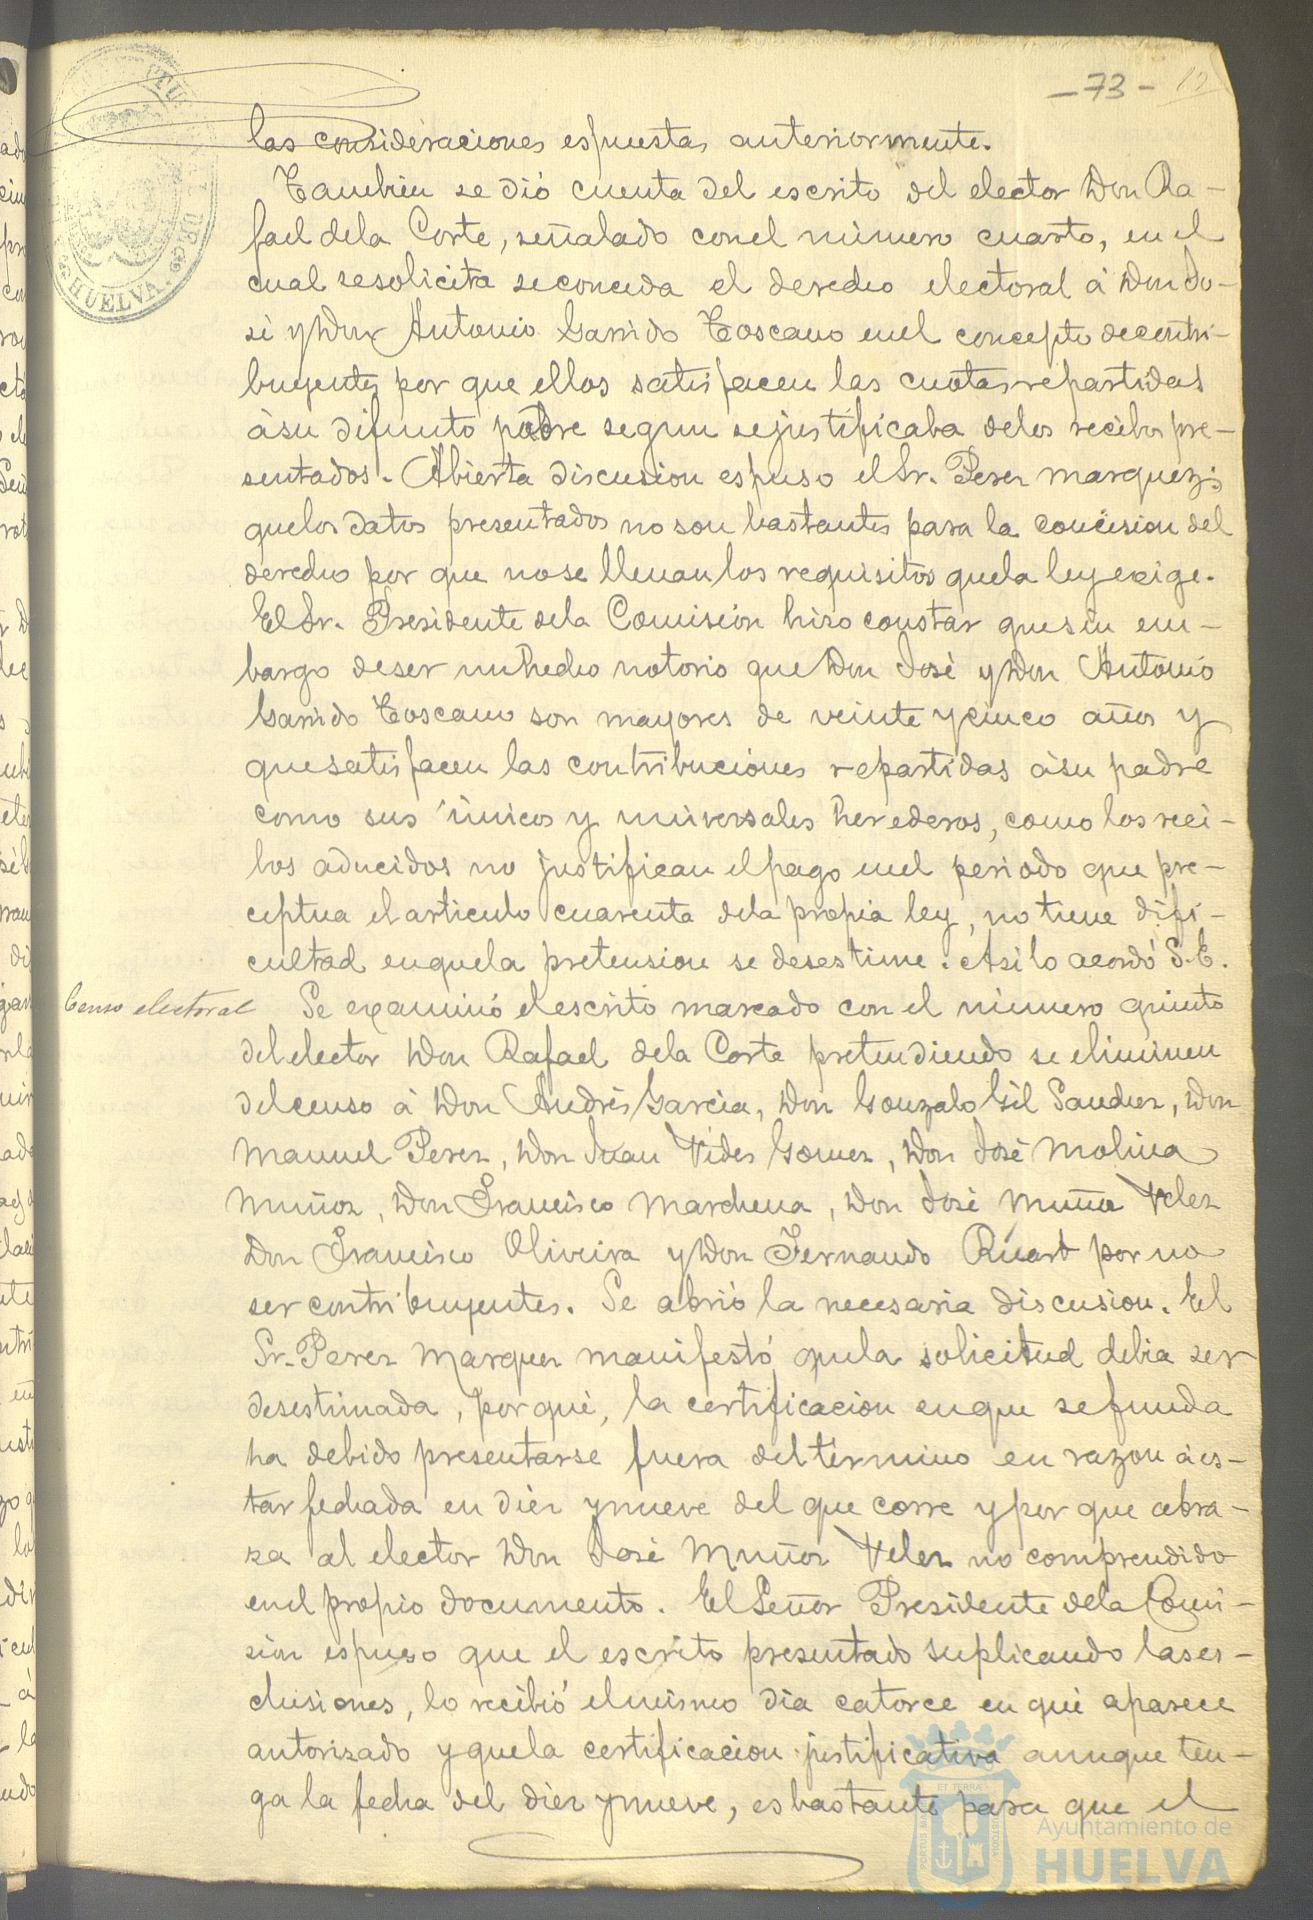 -73-
las consideraciones espuestas anteriormente.
Tambien se dió cuenta del escrito del elector Don Ra-
fael dela Corte, señalado conel número cuarto, en el
cual sesolicita seconceda el derecho electoral á Don Jo-
sé y Don Antonio Garrido Toscano enel concepto decontri-
buyentes por que ellos satisfacen las cuotas repartidas
ásu difunto padre segun sejustificaba delos recibos pre-
sentados. Abierta discusion espuso elSr. Perez marquez;
quelos datos presentados no son bastantes para la concesion del
derecho por que nose llenan los requisitos quela ley exige.
El Sr. Presidente dela Comisión hizo constar quesin em-
bargo deser unhecho notorio que Don José y Don Antonio
Garrido Toscano son mayores de veinte ycinco años y
quesatisfacen las contribuciones repartidas ásu padre
como sus únicos y universales herederos, como los reci-
bos aducidos no justifican elpago enel periodo que pre-
ceptua el articulo cuarenta dela propia ley, no tiene difi-
cultad enquela pretension se desestime. Asi lo acordó S.E.
Censo electoral
Se examinó elescrito marcado con el número quinto
del elector Don Rafael dela Corte pretendiendo se eliminen
delcenso á Don Andrés Garcia, Don Gonzalo Gil Sanchez, Don
Manuel Perez, Don Juan Vides Gomez, Don José Molina
Muñoz, Don Francisco Marchena, Don José Muñoz Velez
Don Francisco Oliveira y Don Fernando Ricart por no
ser contribuyentes. Se abrió la necesaria discusion. El
Sr. Perez Marquez manifestó quela solicitud debia ser
desestimada, porqué, la certificacion enque sefunda
ha debido presentarse fuera deltérmino en razon á es-
tar fechada en diez ynueve del que corre y por que abra-
za al elector Don José Muñoz Velez no comprendido
enel propio documento. El Señor Presidente dela Comi-
sión espuso que el escrito presentado suplicando lases-
clusiones, lo recibió elmismo dia catorce en qué aparece
autorizado y quela certificacion justificativa aunque ten-
ga la fecha del diez ynueve, es bastante para que el
HUELVA.
Ayuntamiento de
HUELVA